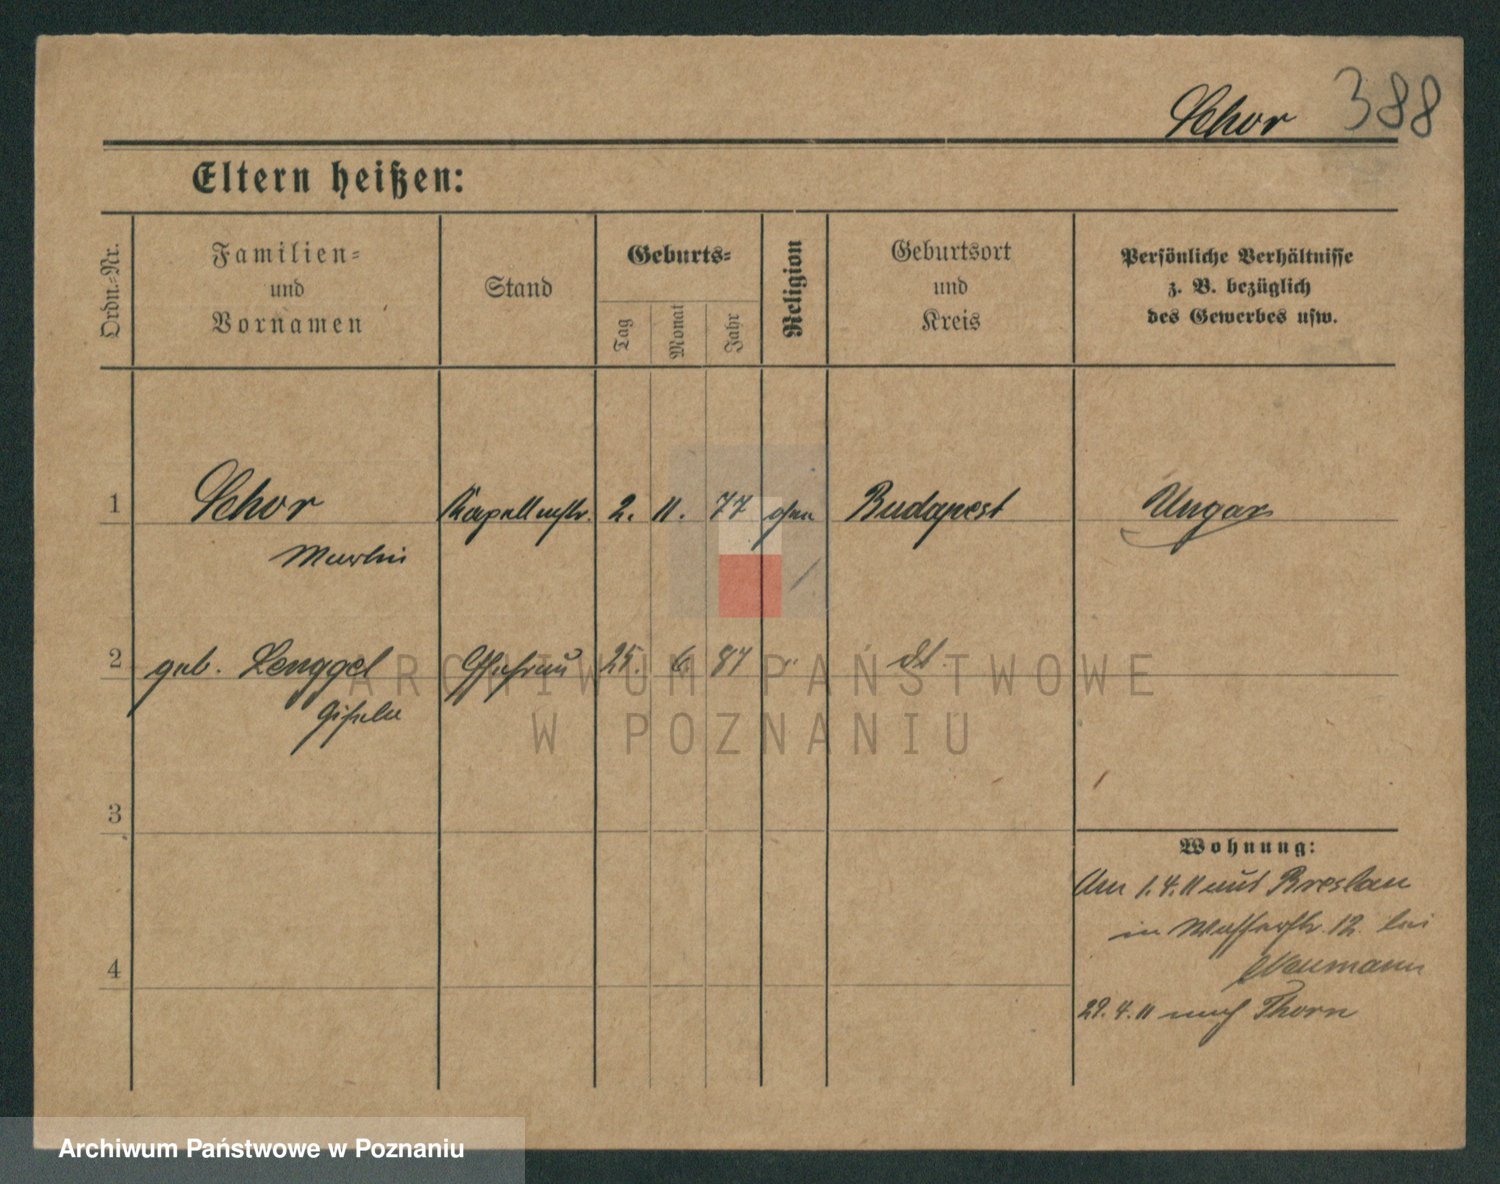 Schor 388
Eltern heißen:
Ordn.-Nr.
Familien-
und
Vornamen
Stand
Geburts-
Tag
Monat
Jahr
Religion
Geburtsort
und
Kreis
Persönliche Verhältnisse
z. B. bezüglich
des Gewerbes usw.
1 Schor Kapellmstr. 2. 11. 77 Budapest Ungar
Martin
2 geb. Lenggel Ehefrau 25. 6. 87 " dt.
Gisela
3
4
Wohnung:
Am 1.4.11 aus Breslau
in Wasserstr. 12. bei
Neumann
29.4.11 nach Thorn
ARCHIWUM PAŃSTWOWE
W POZNANIU
Archiwum Państwowe w Poznaniu